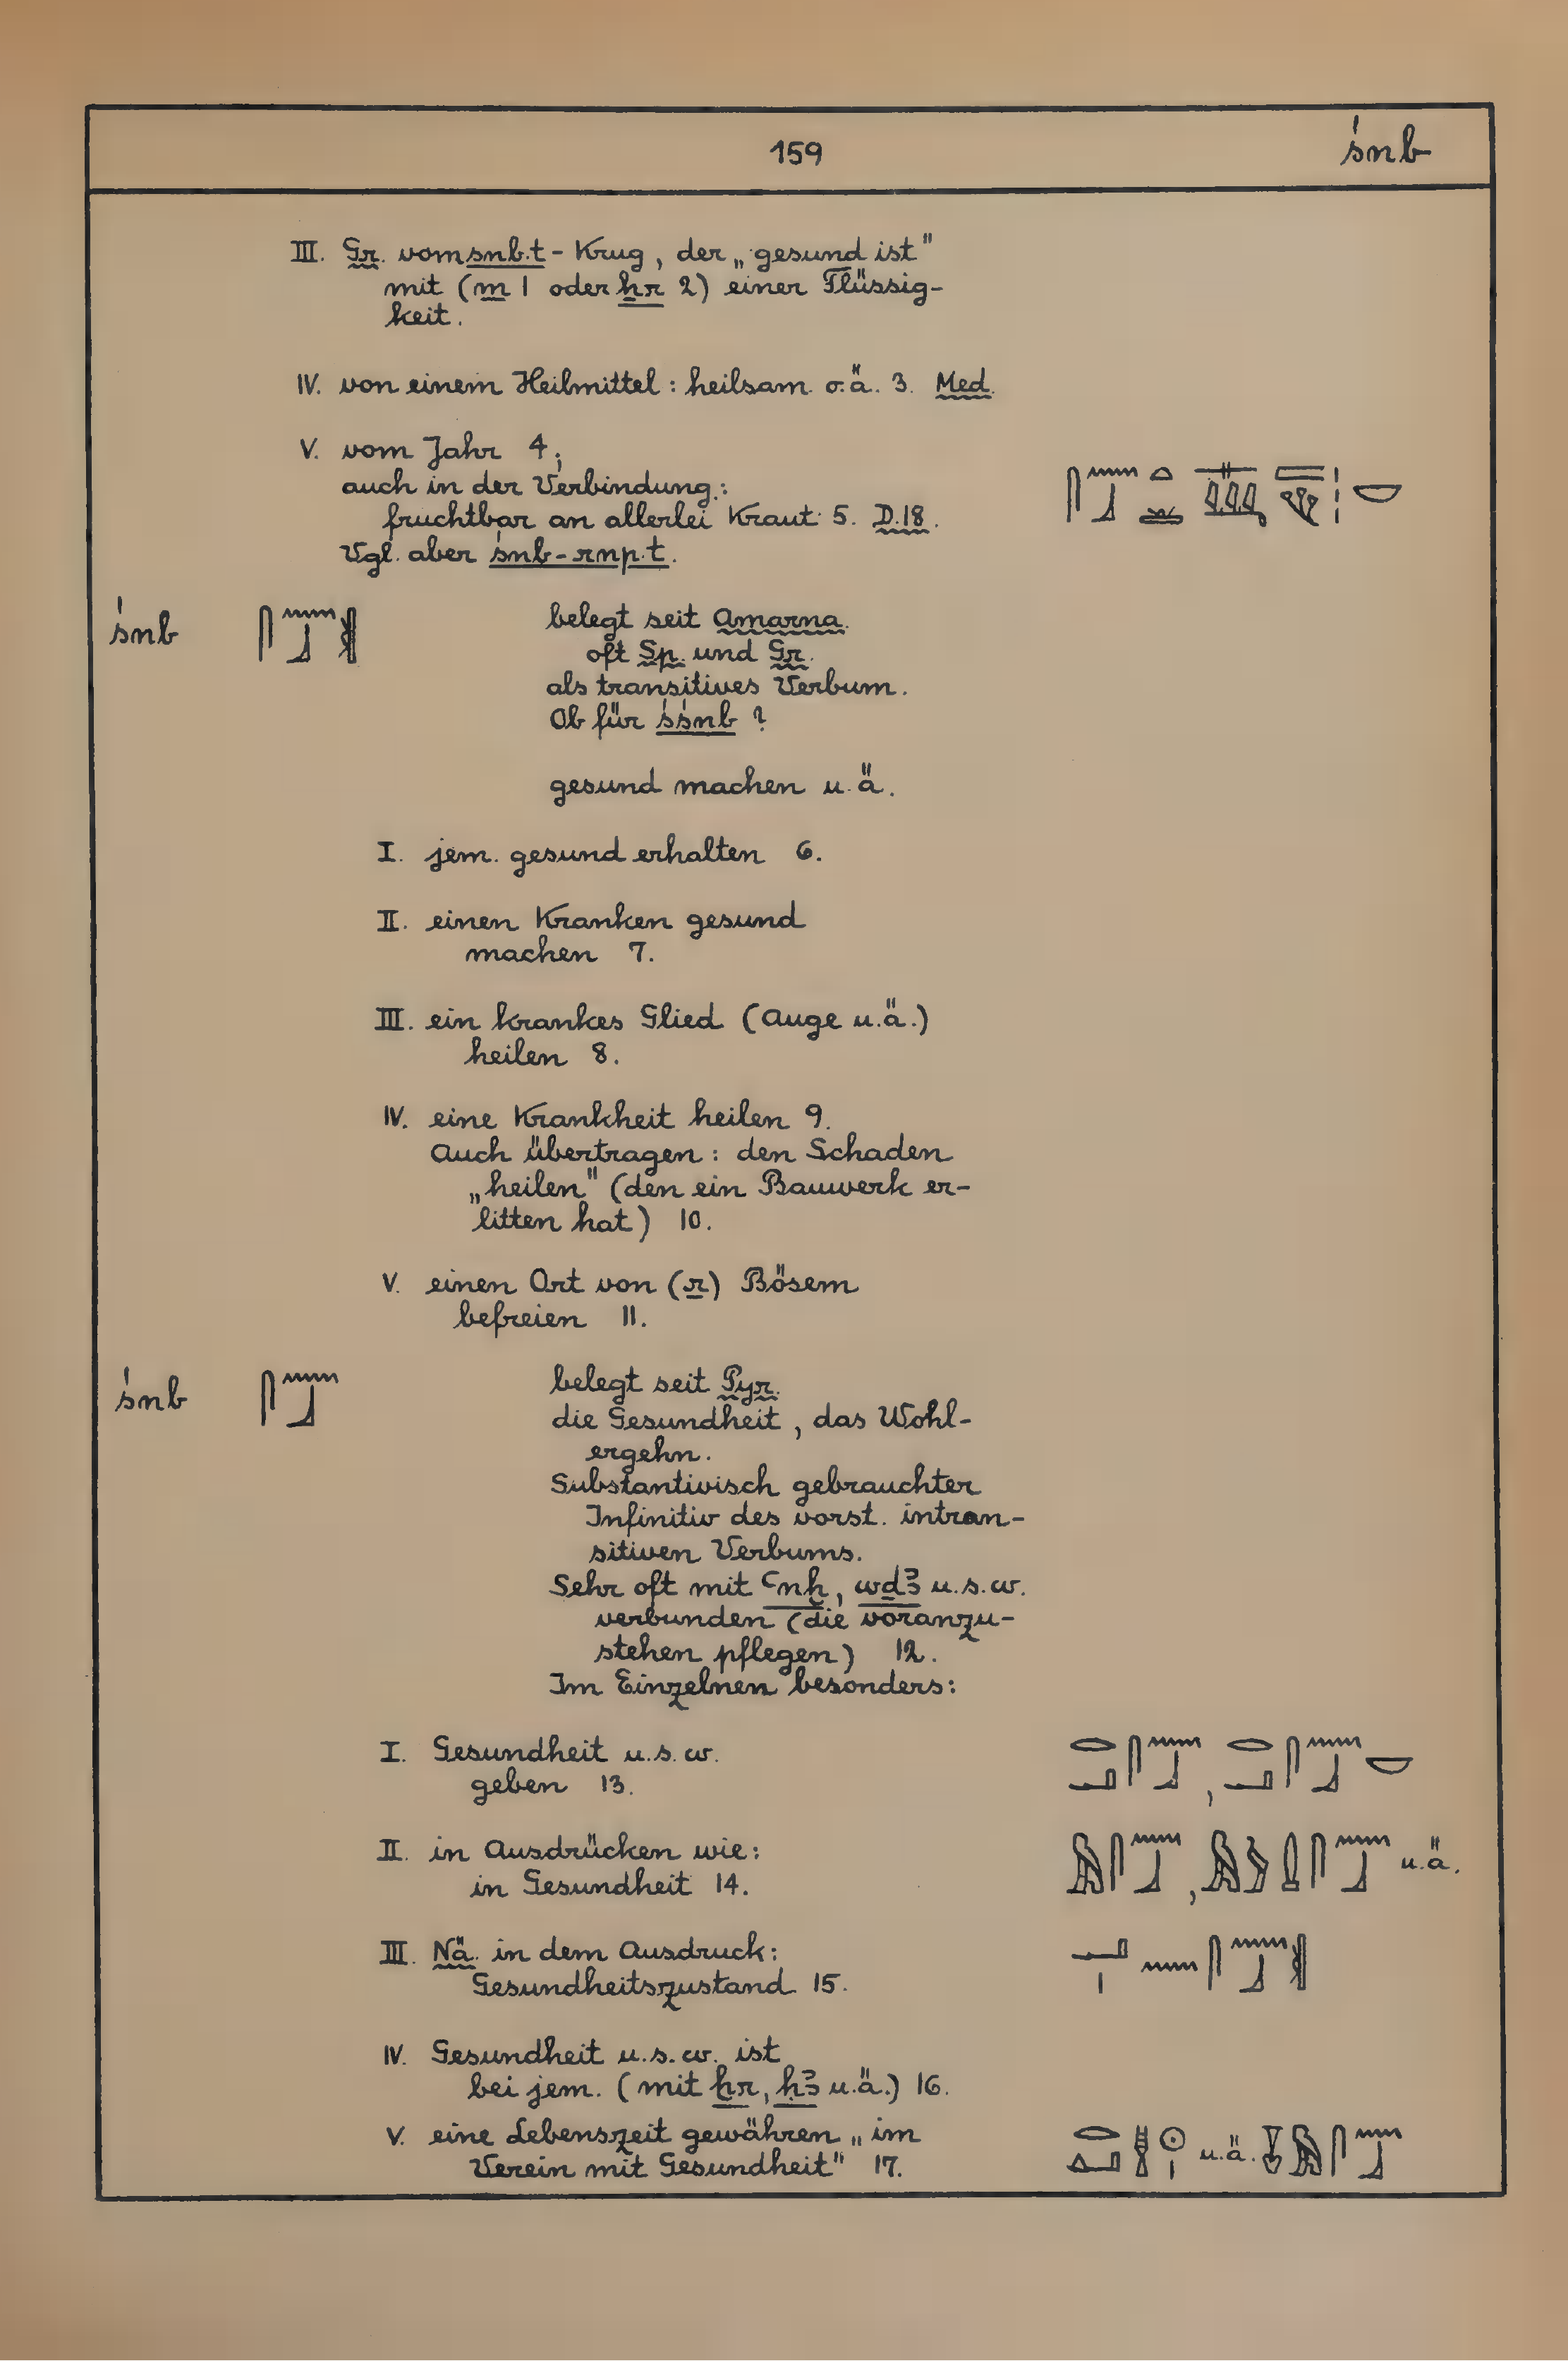 159 śnb
III. Gr. vom snb.t-Krug, der „gesund ist"
mit (m 1 oder ẖr 2) einer Flüssig-
keit.
IV. von einem Heilmittel: heilsam o.ä. 3. Med.
V. vom Jahr 4;
auch in der Verbindung:
fruchtbar an allerlei Kraut 5. D.18.
Vgl. aber śnb-rnp.t.
śnb belegt seit Amarna.
oft Sp. und Gr.
als transitives Verbum.
Ob für śśnb?
gesund machen u.ä.
I. jem. gesund erhalten 6.
II. einen Kranken gesund
machen 7.
III. ein krankes Glied (Auge u.ä.)
heilen 8.
IV. eine Krankheit heilen 9.
Auch übertragen: den Schaden
„heilen" (den ein Bauwerk er-
litten hat) 10.
V. einen Ort von (r) Bösem
befreien 11.
śnb belegt seit Pyr.
die Gesundheit, das Wohl-
ergehn.
Substantivisch gebrauchter
Infinitiv des vorst. intran-
sitiven Verbums.
Sehr oft mit ꜥnḫ, wḏꜣ u.s.w.
verbunden (die voranzu-
stehen pflegen) 12.
Im Einzelnen besonders:
I. Gesundheit u.s.w.
geben 13.
II. in Ausdrücken wie: u.ä.
in Gesundheit 14.
III. Nä. in dem Ausdruck:
Gesundheitszustand 15.
IV. Gesundheit u.s.w. ist
bei jem. (mit ẖr, ḥꜣ u.ä.) 16.
V. eine Lebenszeit gewähren „im u.ä.
Verein mit Gesundheit" 17.